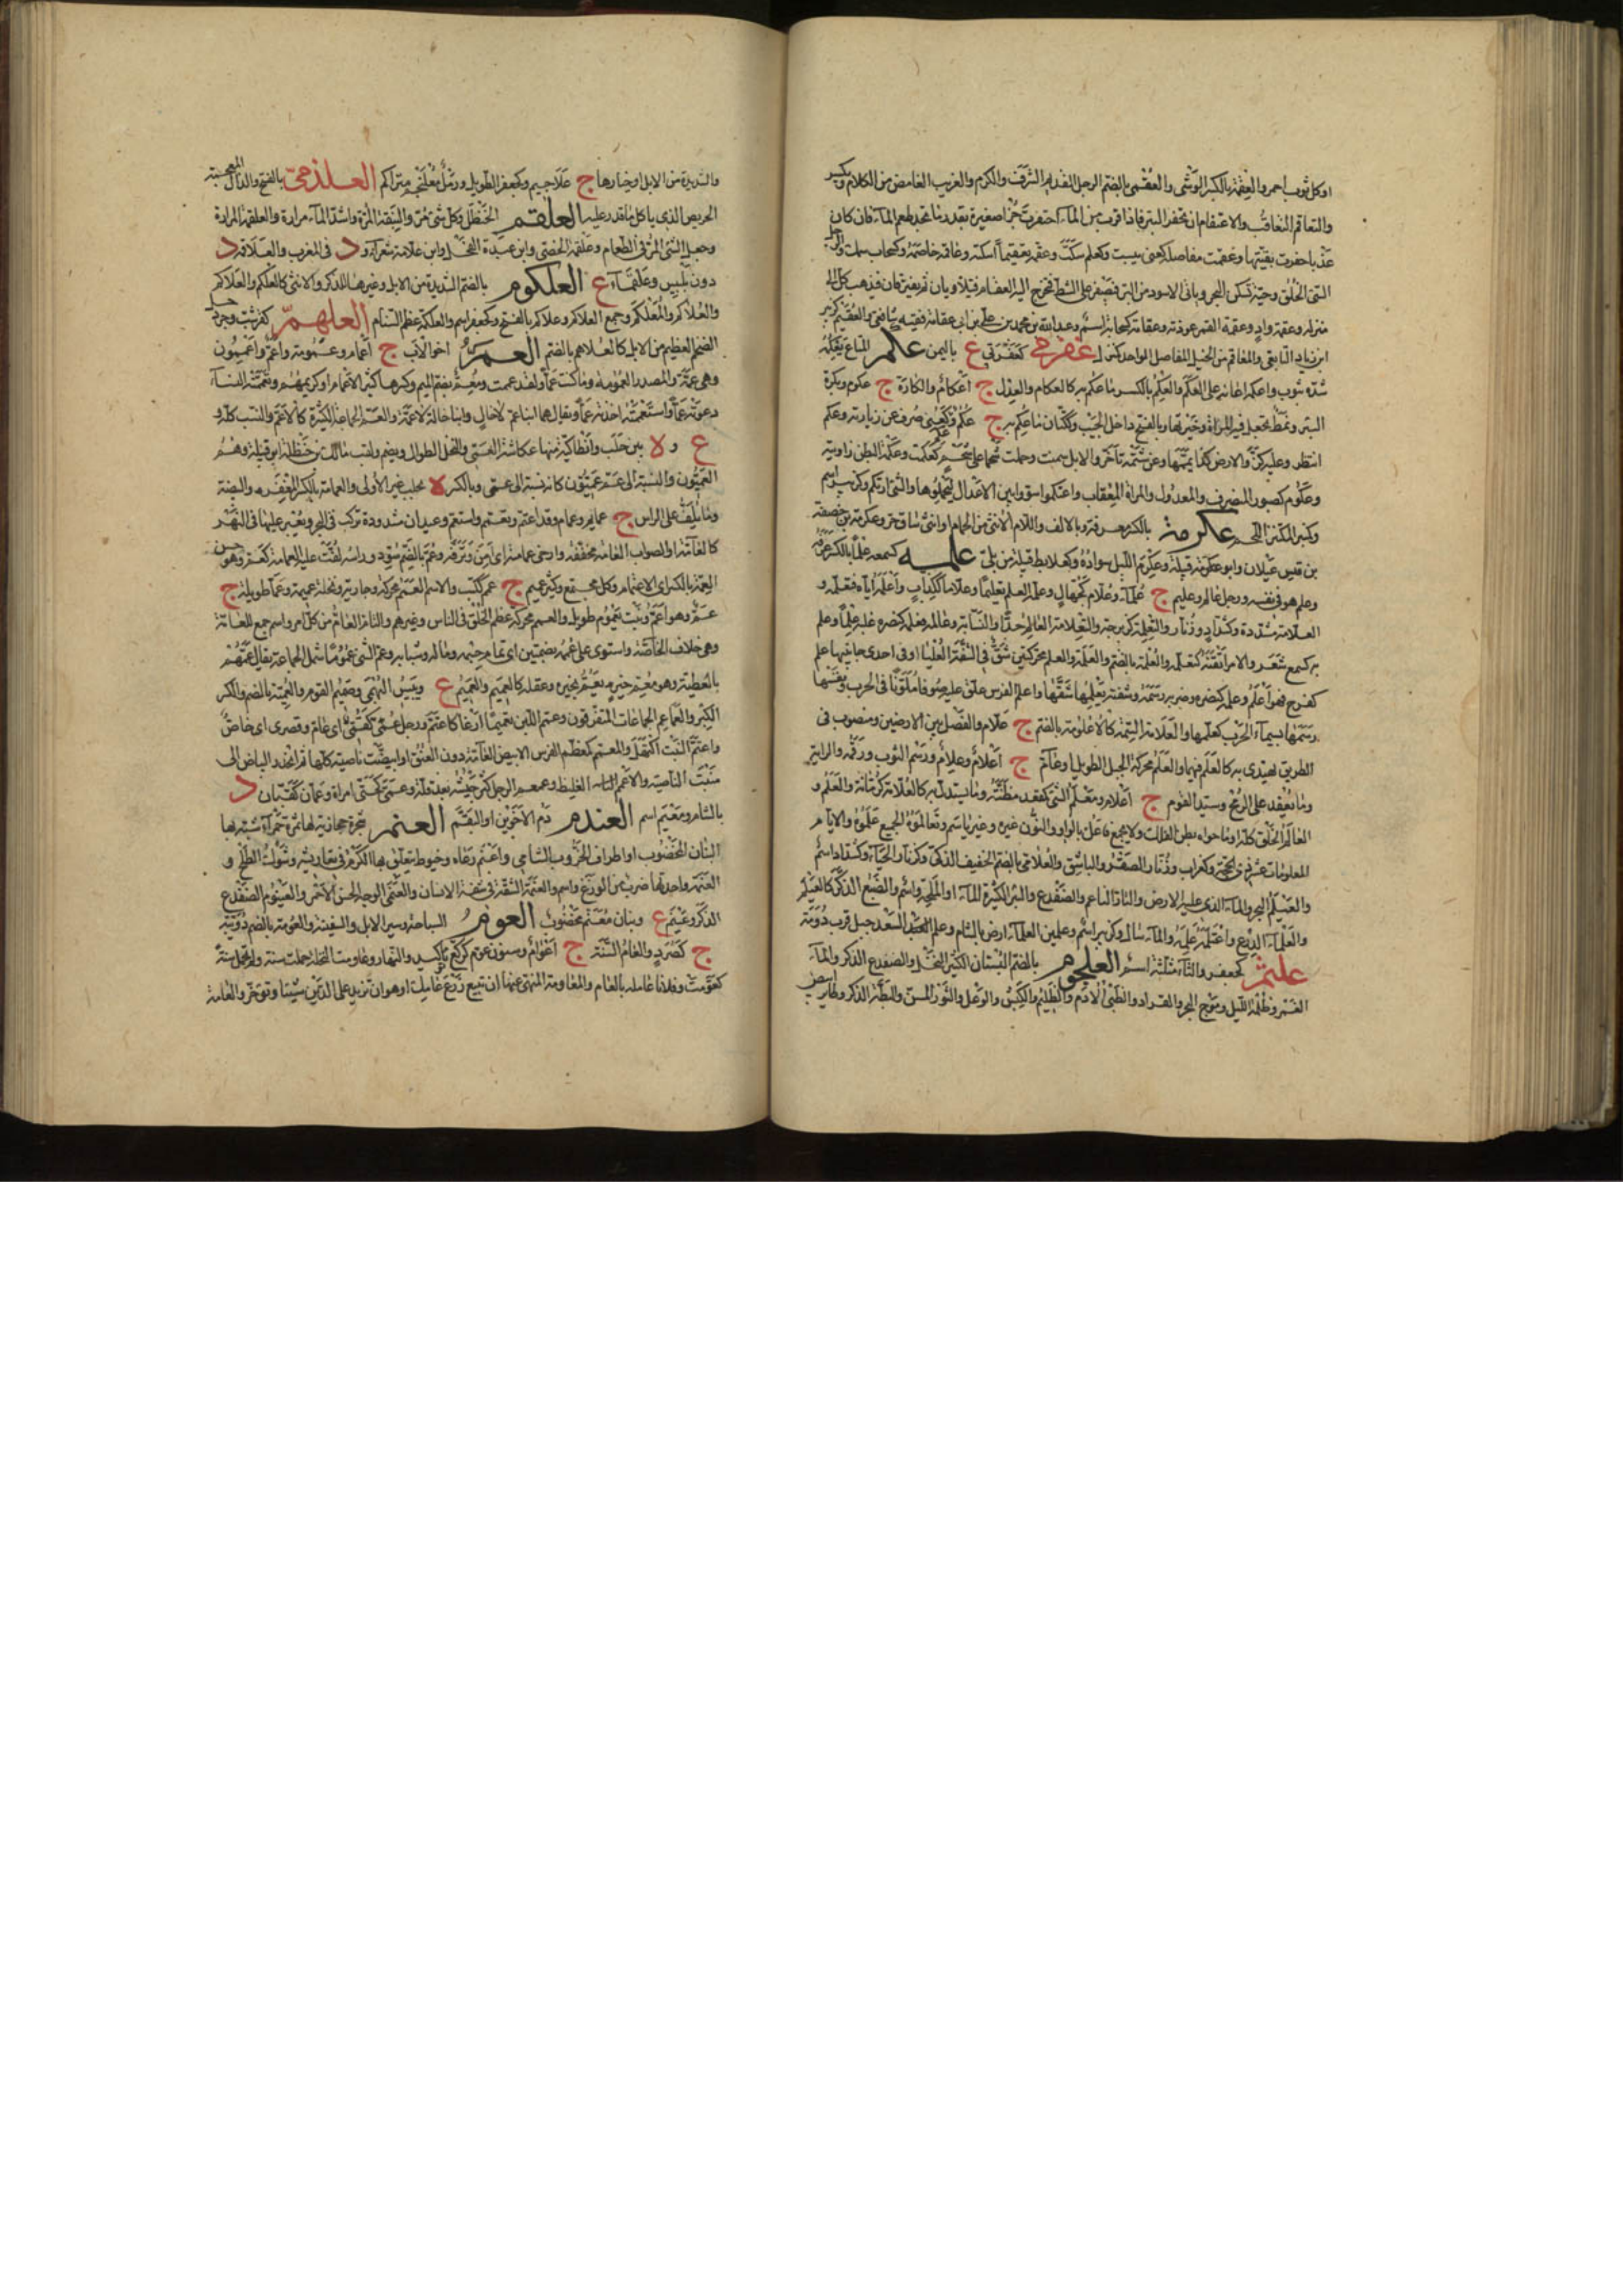 او كل ثوب احمر والعقمة بالكسر الوشى والعقمى بالضم الرجل القديم الشرف والكرم والغريب الغامض من الكلام ويكسر
والتعاقم التعاقب والاعتقام ان تحفر البئر فاذا قربت من الماء احتفرت بئرا صغيرة بقدر ما تجد طعم الماء فان كان
عذبا حفرت بقيتها وعقمت مفاصله كعنى يبست وكعلم سكت وعقمه تعقيما اسكته وعاقمه خاصمه وكسحاب
السئ الخلق وحية تسكن البحر وياتى الاسود من البر فيصفر على الشط فتخرج اليه العقام فيتلاويان ثم يفترقان فيذهب كل الى
منزله وعقمة واد وعقمة القمر عودته وعقامة كسحابة اسم وعبد الله بن محمد بن على بن ابى عقامة فقيه شافعى والعقيم كزبير
ابن زياد التابعى والمعاقم من الخيل المفاصل الواحد كمنزل عقرمى كعفرنى ع باليمن عكم المتاع يعكمه
شده بثوب واعكمه اعانه على العكم والعكم بالكسر ما عكم به كالعكام والعدل ج اعكام والكارة ج عكوم وبكرة
البئر ونمط تجعل فيه المراة ذخيرتها وبالفتح داخل الجنب وككتاب ما عكم به ج عكم وكعنى صرف عن زيارته وعكم
انتظر وعليه كر والارض كذا يممها وعن شتمه تاخر والابل سمنت وحملت شحما على شحم كعكمت وعكمة البطن زاويته
وعكوم كصبور المنصرف والمعدل والمراة المعقاب واعتكموا سووا بين الاعدال ليحملوها والشئ ارتكم وكزبير اسم
وكمنبر المكتنز اللحم عكرمة بالكسر معرفة وبالالف واللام الانثى من الحمام او انثى ساق حر وعكرمة بن خصفة
بن قيس عيلان وابو عكرمة قبيلة وعكرم الليل سواده وكعلابط قبيلة من بلى علمه كسمعه علما بالكسر عرفه
وعلم هو فى نفسه ورجل عالم وعليم ج علماء وعلام كجهال وعلمه العلم تعليما وعلاما ككذاب واعلمه اياه فتعلمه و
العلامة مشددة وكشداد وزنار والتعلمة كزبرجة والتعلامة العالم جدا والنسابة وعالمه فعلمه كنصره غلبه علما وعلم
به كسمع شعر والامر اتقنه كتعلمه والعلمة بالضم والعلمة والعلم محركتين شق فى الشفة العليا او فى احدى جانبيها علم
كفرح فهو اعلم وعلمه كنصره وضربه وسمه وشفته يعلمها شقها واعلم الفرس علق عليه صوفا ملونا فى الحرب ونفسه
وسمها بسيماء الحرب كعلمها والعلامة السمة كالاعلومة بالضم ج علام والفصل بين الارضين ومنصوب فى
الطريق يهتدى به كالعلم فيهما والعلم محركة الجبل الطويل او عام ج اعلام وعلام ورسم الثوب ورقمه والراية
وما يعقد على الرمح وسيد القوم ج اعلام ومعلم الشئ كمقعد مظنته وما يستدل به كالعلامة كرمانة والعلم و
العالم الخلق كله او ما حواه بطن الفلك ولا يجمع فاعل بالواو والنون غيره وغير ياسم وتعالموه الجميع علموه والايام
المعلومات عشر ذى الحجة وكغراب وزنار الصقر والباشق والعلامى بالضم الخفيف الذكى وكزنار الحناء وكشداد اسم
والعيلم البحر والماء الذى عليه الارض والتار الناعم والضفدع والبئر الكثيرة الماء او الملحة واسم والضبع الذكر كالعيلام
والعلماء الدرع واعتلمه علمه والماء سال وكزبير اسم وعلمين العلماء ارض بالشام وعلم السعد جبل قرب دومة
علثم كجعفر والثاء مثلثة اسم العلجوم بالضم البستان الكثير النخل والضفدع الذكر والماء
الغمر وظلمة الليل وموج البحر والقراد والظبى الآدم والظليم والكبش والوعل والثور المسن والبطة الذكر وطائر ابيض
والشديدة من الابل او خيارها ج علاجيم وكجعفر الطويل ورمل معلنجم متراكم العلذمى بالفتح والذال المعجمة
الحريص الذى ياكل ما قدر عليه العلقم الحنظل وكل شئ مر والنبقة المرة واشد الماء مرارة والعلقمة المرارة
وجعل الشئ المر فى الطعام وعلقمة الخصى وابن عبدة الفحل وابن علاثة شعراء و د فى المغرب والعلاقمة د
دون بلبيس وعلقماء ع العلكوم بالضم الشديدة من الابل وغيرها للذكر والانثى كالعلكم والعلاكم
والعلاكم والمعلكم وجمع العلاكم وعلاكم بالفتح وكجعفر اسم والعلكمة عظم السنام العلهم كقرشب وجردحل
الضخم العظيم من الابل كالعلاهم بالضم العم اخو الاب ج اعمام وعمومة واعم واعممون
وهى عمة والمصدر العمومة وما كنت عما ولقد عممت ومعم بضم الميم وكسرها كثير الاعمام او كريمهم وتعممته النساء
دعونه عما واستعممته اخذته عما ويقال هما ابنا عم لا خال وابنا خالة لا عمة والعم الجماعة الكثيرة كالاعم والنسب كله و
ع و لا بين حلب وانطاكية منها عكاشة العمى والنخل الطوال ويضم ولقب مالك بن حنظلة ابى قبيلة وهم
العميون والنسبة الى عم عميون كانه نسبة الى عمى وبالكسر لا بحلب غير الاولى والعمامة بالكسر المغفر والبيضة
وما يلف على الراس ج عمايم وعمام وقد اعتم وتعمم واستعم وعيدان مشدودة تركب فى البحر ويعبر عليها فى النهر
كالعامة او الصواب العامة مخففة وارخى عمامته اى امن وترفه وعمم بالضم سود وراسه لفت عليه العمامة كعم وهو حسن
العمة بالكسر اى الاعتمام وكل مجتمع وكثير عميم ج عمم ككتب والاسم العمم محركة وجارية ونخلة عميمة وعماء طويلة ج
عم وهو اعم ونبت يعموم طويل والعمم محركة عظم الخلق فى الناس وغيرهم والتام العام من كل امر واسم جمع للعامة
وهى خلاف الخاصة واستوى على عممه بضمتين اى تمام جسمه وماله وشبابه وعم الشئ عموما شمل الجماعة يقال عمهم
بالعطية وهو معم خير يعم بخيره وعقله كالعميم والعمم ع ويبيس البهمى وصميم القوم والعمية بالضم والكسر
الكبر والعماعم الجماعات المتفرقون وعمم اللبن تعميما ارغا كاعتم ورجل عمى كقمى اى عام وقصرى اى خاص
واعتم النبت اكتهل والمعمم كمعظم الفرس الابيض الهامة دون العنق او ابيضت ناصيته كلها ثم انحدر البياض الى
منبت الناصية والاعم الغليظ وعمعم الرجل كثر جيشه بعد قلة وعمى كحتى امراة وعمان كقبان د
بالشام ومعتم اسم العندم دم الاخوين او البقم العنم شجرة حجازية لها ثمرة حمراء تشبه بها
البنان المخضوب او اطراف الخروب الشامى واعنم رعاه وخيوط يتعلق بها الكرم فى تعاريشه وشوك الطلح و
العنمة واحدتها ضرب من الوزغ واسم والعنمة الشقة فى شفة الانسان والعنمى الوجه الحسن الاحمر والعينوم الضفدع
الذكر وعينم ع وبنان معنم مخضوب العوم السباحة وسير الابل والسفينة والعومة بالضم دويبة
ج كصرد والعام السنة ج اعوام وسنون عوم كركع تاكيد والنهار وعاومت النخلة حملت سنة ولم تحمل سنة
كعومت وفلانا عامله بالعام والمعاومة المنهى عنها ان تبيع زرع عامك او هو ان تزيد على الدين شيئا وتوخره والعامة